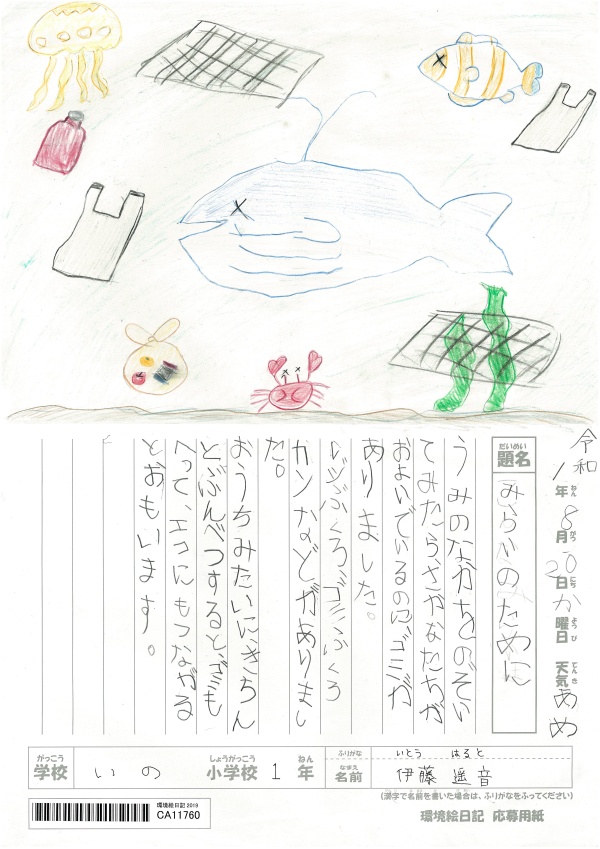 令和
1年ねん8月がつ20日にちか曜日ようび 天気てんきあめ
だいめい
題名
みらいのために
うみのなかをのぞい
てみたら、さかなたちが
およいでいるのにゴミが
ありました。
レジぶくろ、ゴミぶくろ
カンなどがありまし
た。
おうちみたいにきちん
とぶんべつするとゴミも
へって、エコにもつながる
とおもいます。
がっこう
学校
いの
しょうがっこう
小学校
1
ねん
年
ふりがな
いとう はると
なまえ
名前
伊藤 遥音
(漢字で名前を書いた場合は、ふりがなをふってください)
環境絵日記 2019
CA11760
環境絵日記 応募用紙